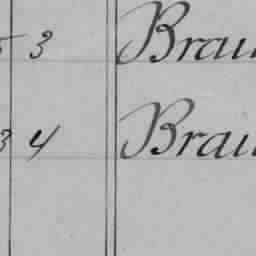 3 Brau
34 Brau